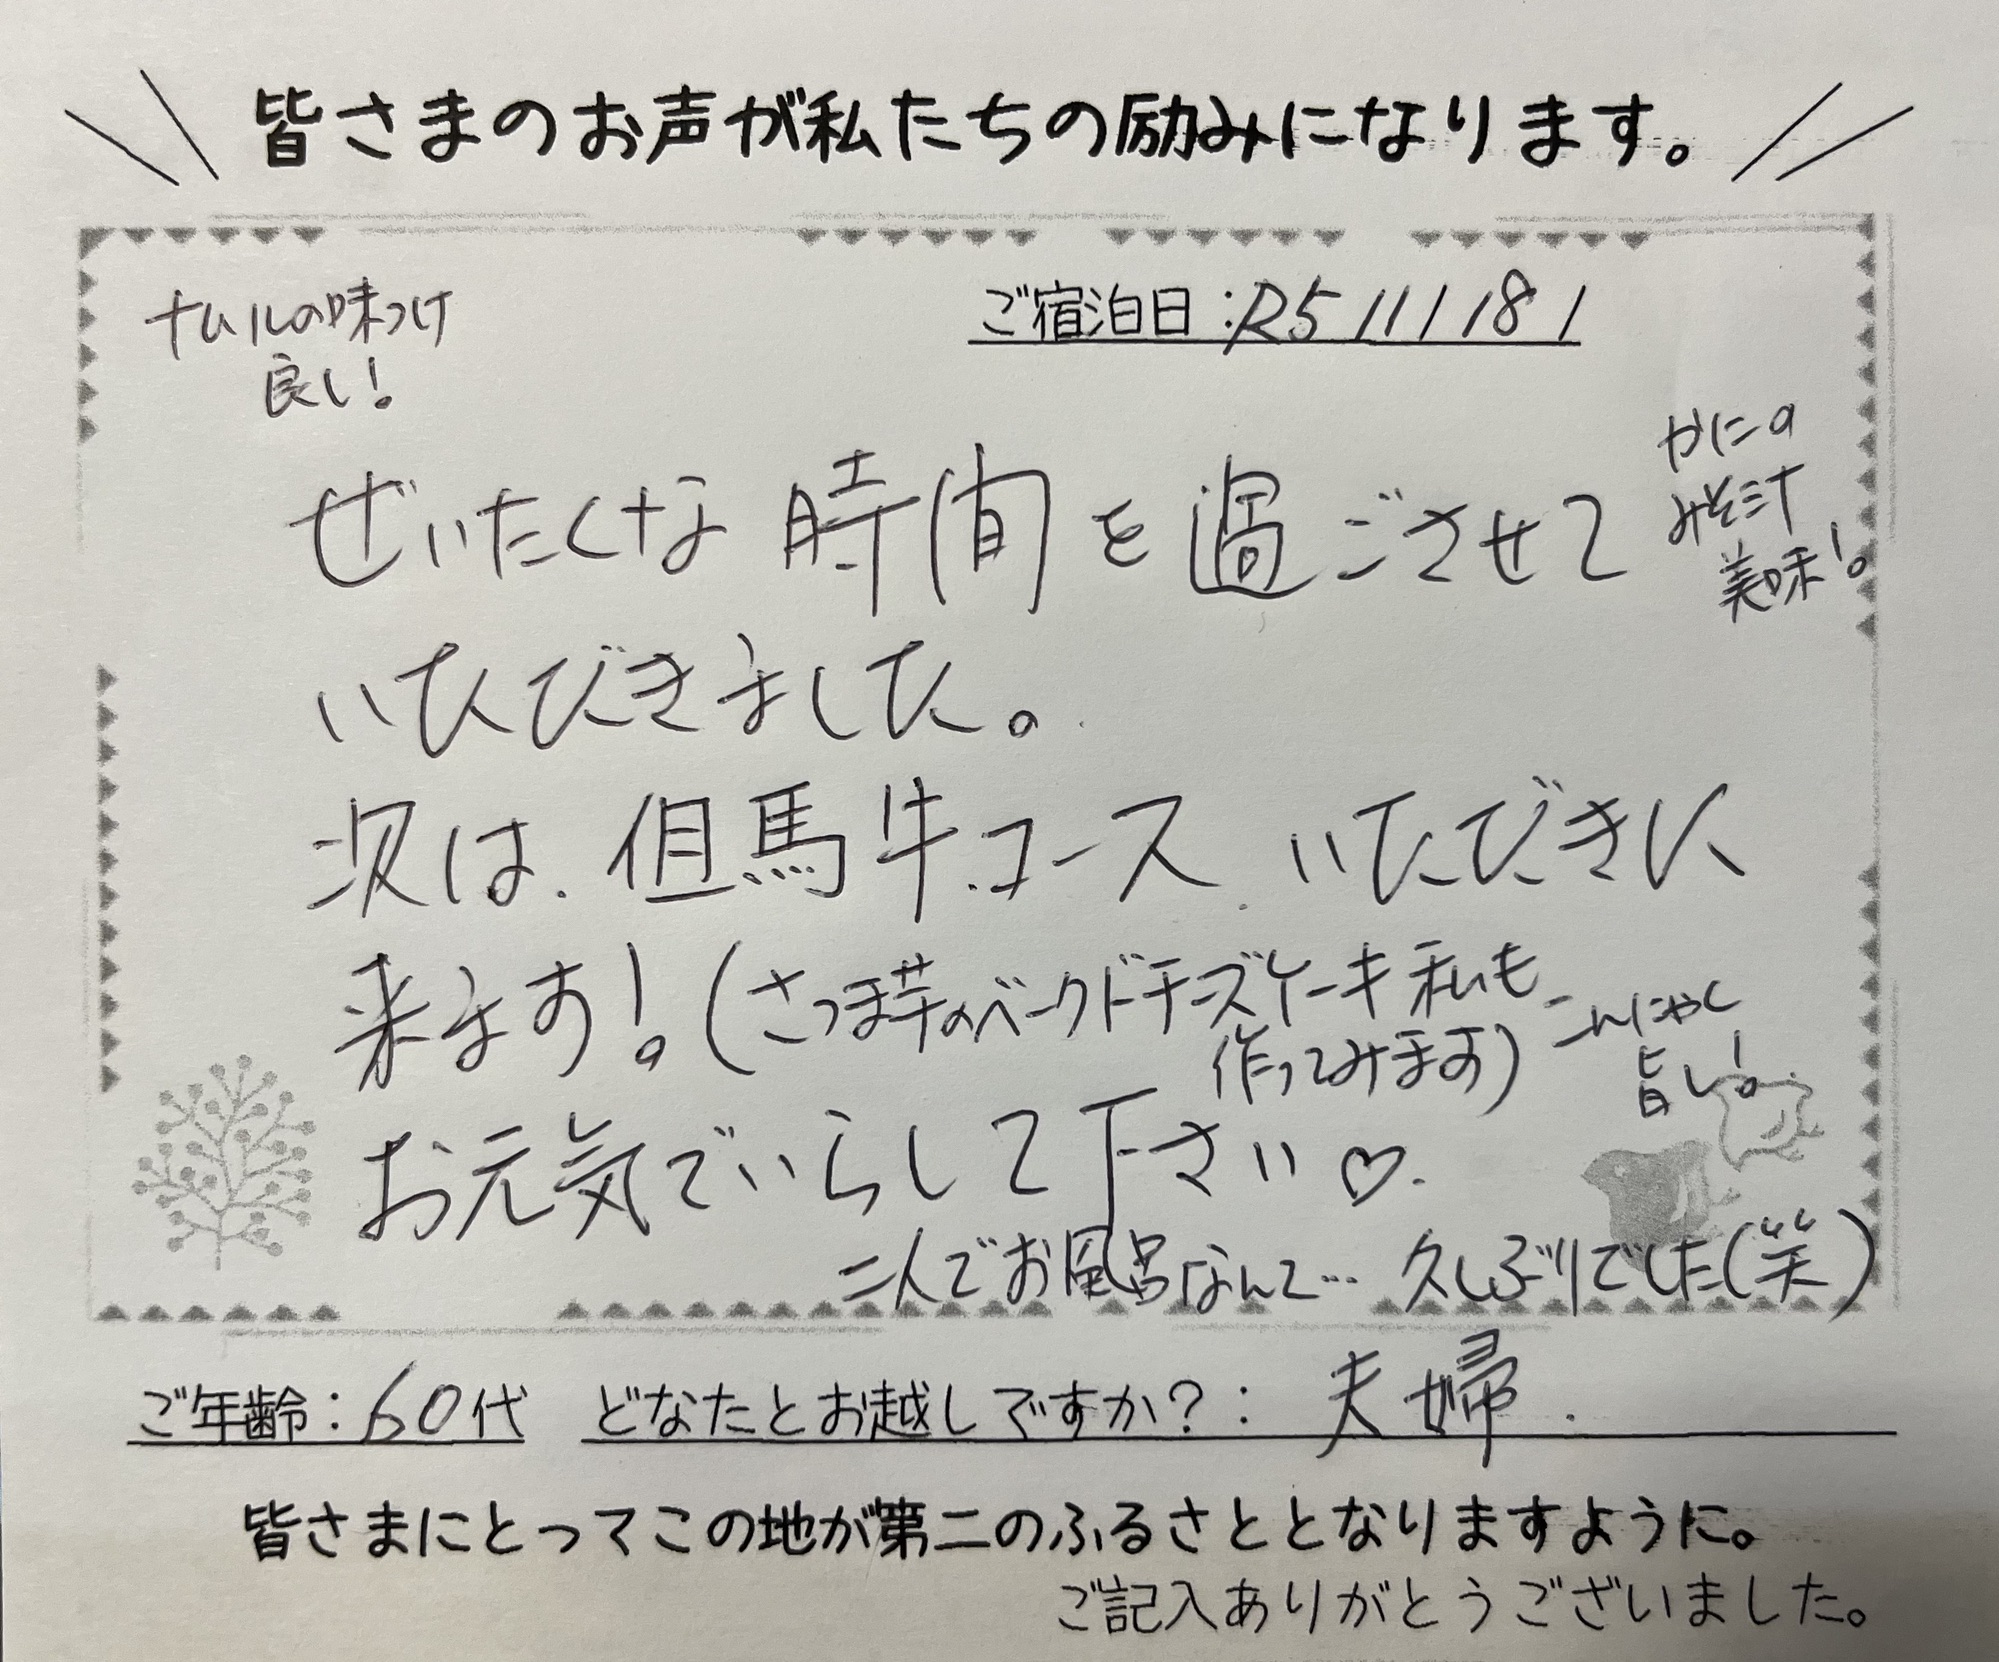 皆さまのお声が私たちの励みになります。
ナムルの味つけ
良し!
ご宿泊日:R5/11/18/
ぜいたくな時間を過ごさせて
かにの
みそ汁
美味!
いただきました。
次は.但馬牛.コース.いただきに
来ます!(さつま芋のベークドチーズケーキ私も
作ってみます)
こんにゃく
旨し!
お元気でいらして下さい♡.
二人でお風呂なんて…久しぶりでした(笑)
ご年齢:60代 どなたとお越しですか?:夫婦.
皆さまにとってこの地が第二のふるさととなりますように。
ご記入ありがとうございました。